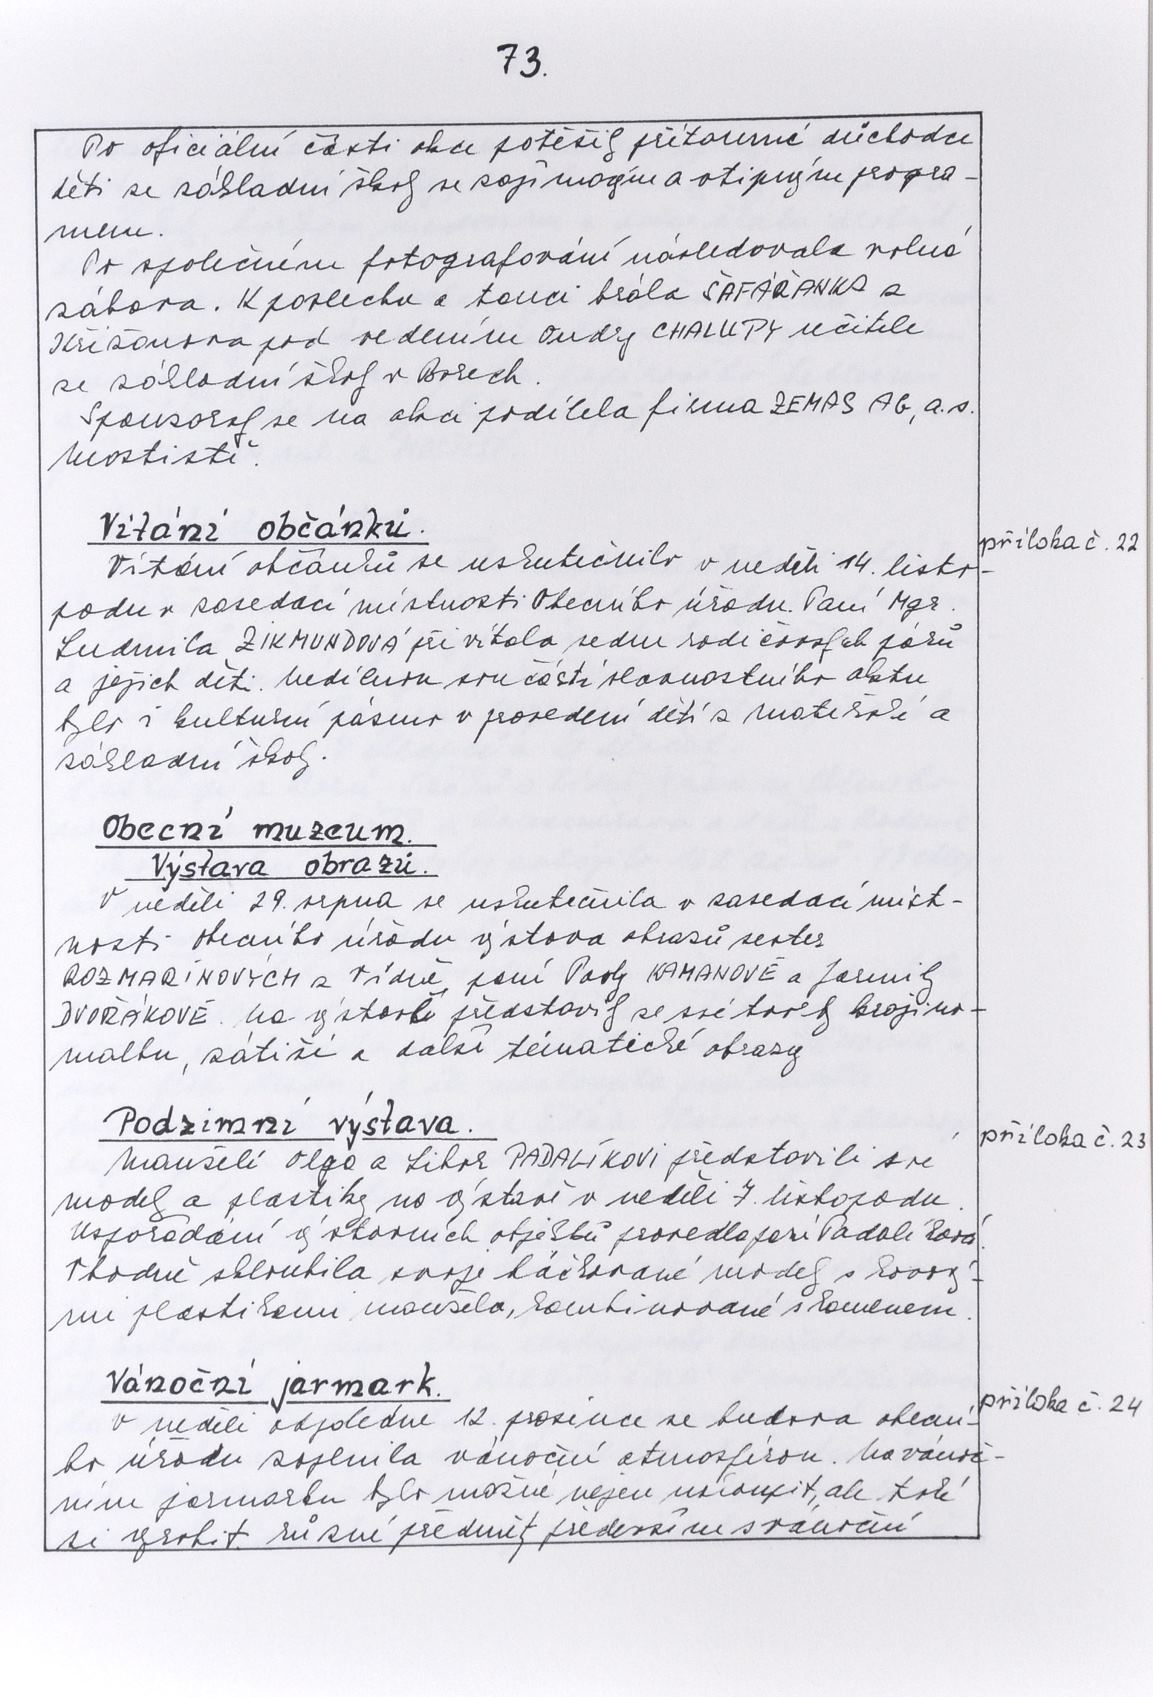 73.
Po oficiální části akce potěšily přítomné důchodce
děti ze základní školy se zajímavým a vtipným progra-
mem.
Po společném fotografování následovala volná
zábava. K poslechu a tanci hrála ŠAFÁŘANKA z
Křižanova pod vedením Ondry CHALUPY učitele
ze základní školy v Borech.
Sponzorsky se na akci podílela firma ZEMAS AG, a.s.
Mostiště.
Vítání občánků.
příloha č. 22
Vítání občánků se uskutečnilo v neděli 14. listo-
padu v zasedací místnosti Obecního úřadu. Paní Mgr.
Ludmila ZIKMUNDOVÁ přivítala sedm rodičovských párů
a jejich děti. Nedílnou součástí slavnostního aktu
bylo i kulturní pásmo v provedení dětí z mateřské a
základní školy.
Obecní muzeum.
Výstava obrazů.
V neděli 29. srpna se uskutečnila v zasedací míst-
nosti Obecního úřadu výstava obrazů sester
ROZMARÍNOVÝCH z Vídně, paní Pavly KAMANOVÉ a Jarmily
DVOŘÁKOVÉ. Na výstavě představily se své tvorby krajino-
malbu, zátiší a další tématické obrazy
Podzimní výstava.
příloha č. 23
Manželé Olga a Libor PADALÍKOVI představili své
modely a plastiky na výstavě v neděli 7. listopadu.
Uspořádání výstavních objektů provedla paní Padalíková.
Vhodně skloubila svoje háčkované modely s kovový-
mi plastikami manžela, kombinované s kamenem.
Vánoční jarmark.
příloha č. 24
V neděli odpoledne 12. prosince se budova obecní-
ho úřadu zaplnila vánoční atmosférou. Na vánoč-
ním jarmarku bylo možné nejen nakoupit, ale také
si vyrobit různé předměty především s vánoční